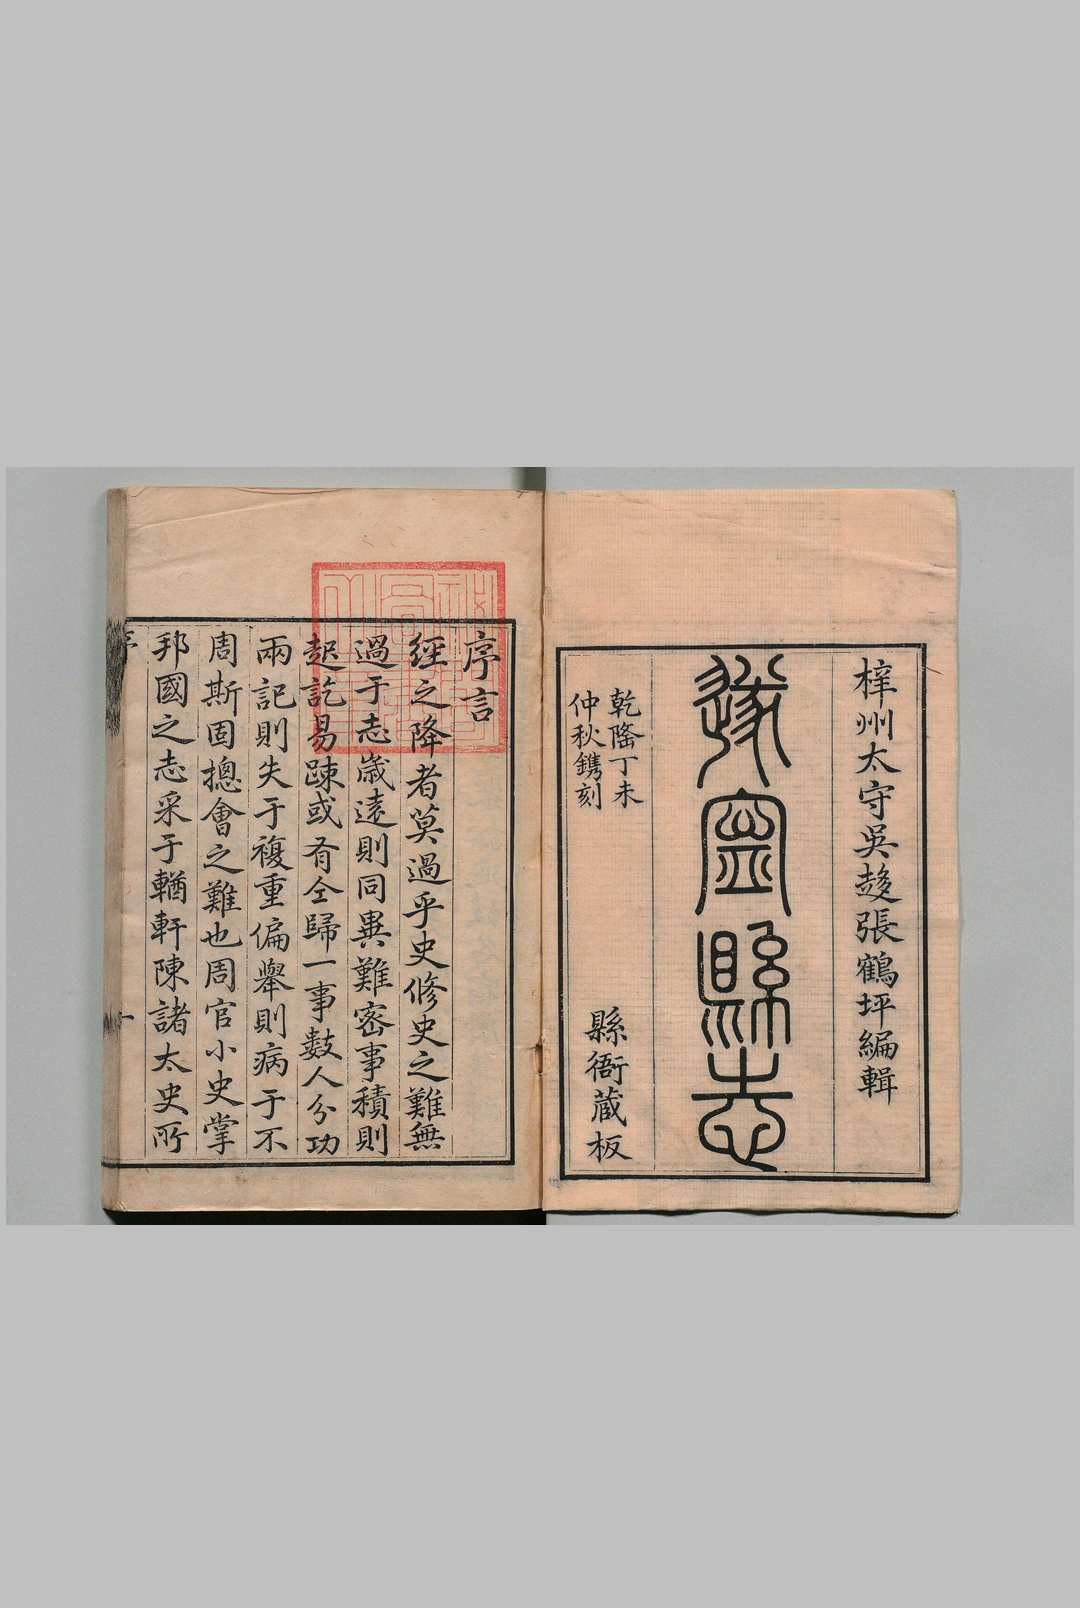 梓州太守吳趍張鶴坪編輯
遂寧縣志
乾隆丁未
仲秋鐫刻
縣衙蔵板
序言
經之降者莫過乎史修史之難無
過于志歳逺則同異難宻事積則
起訖易踈或有仝歸一事數人分功
兩記則失于複重偏舉則病于不
周斯固摠會之難也周官小史掌
邦國之志采于輶軒陳諸太史所
序
一